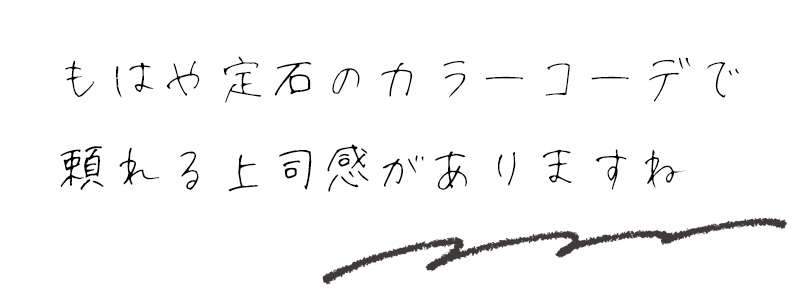 もはや定石のカラーコーデで
頼れる上司感がありますね